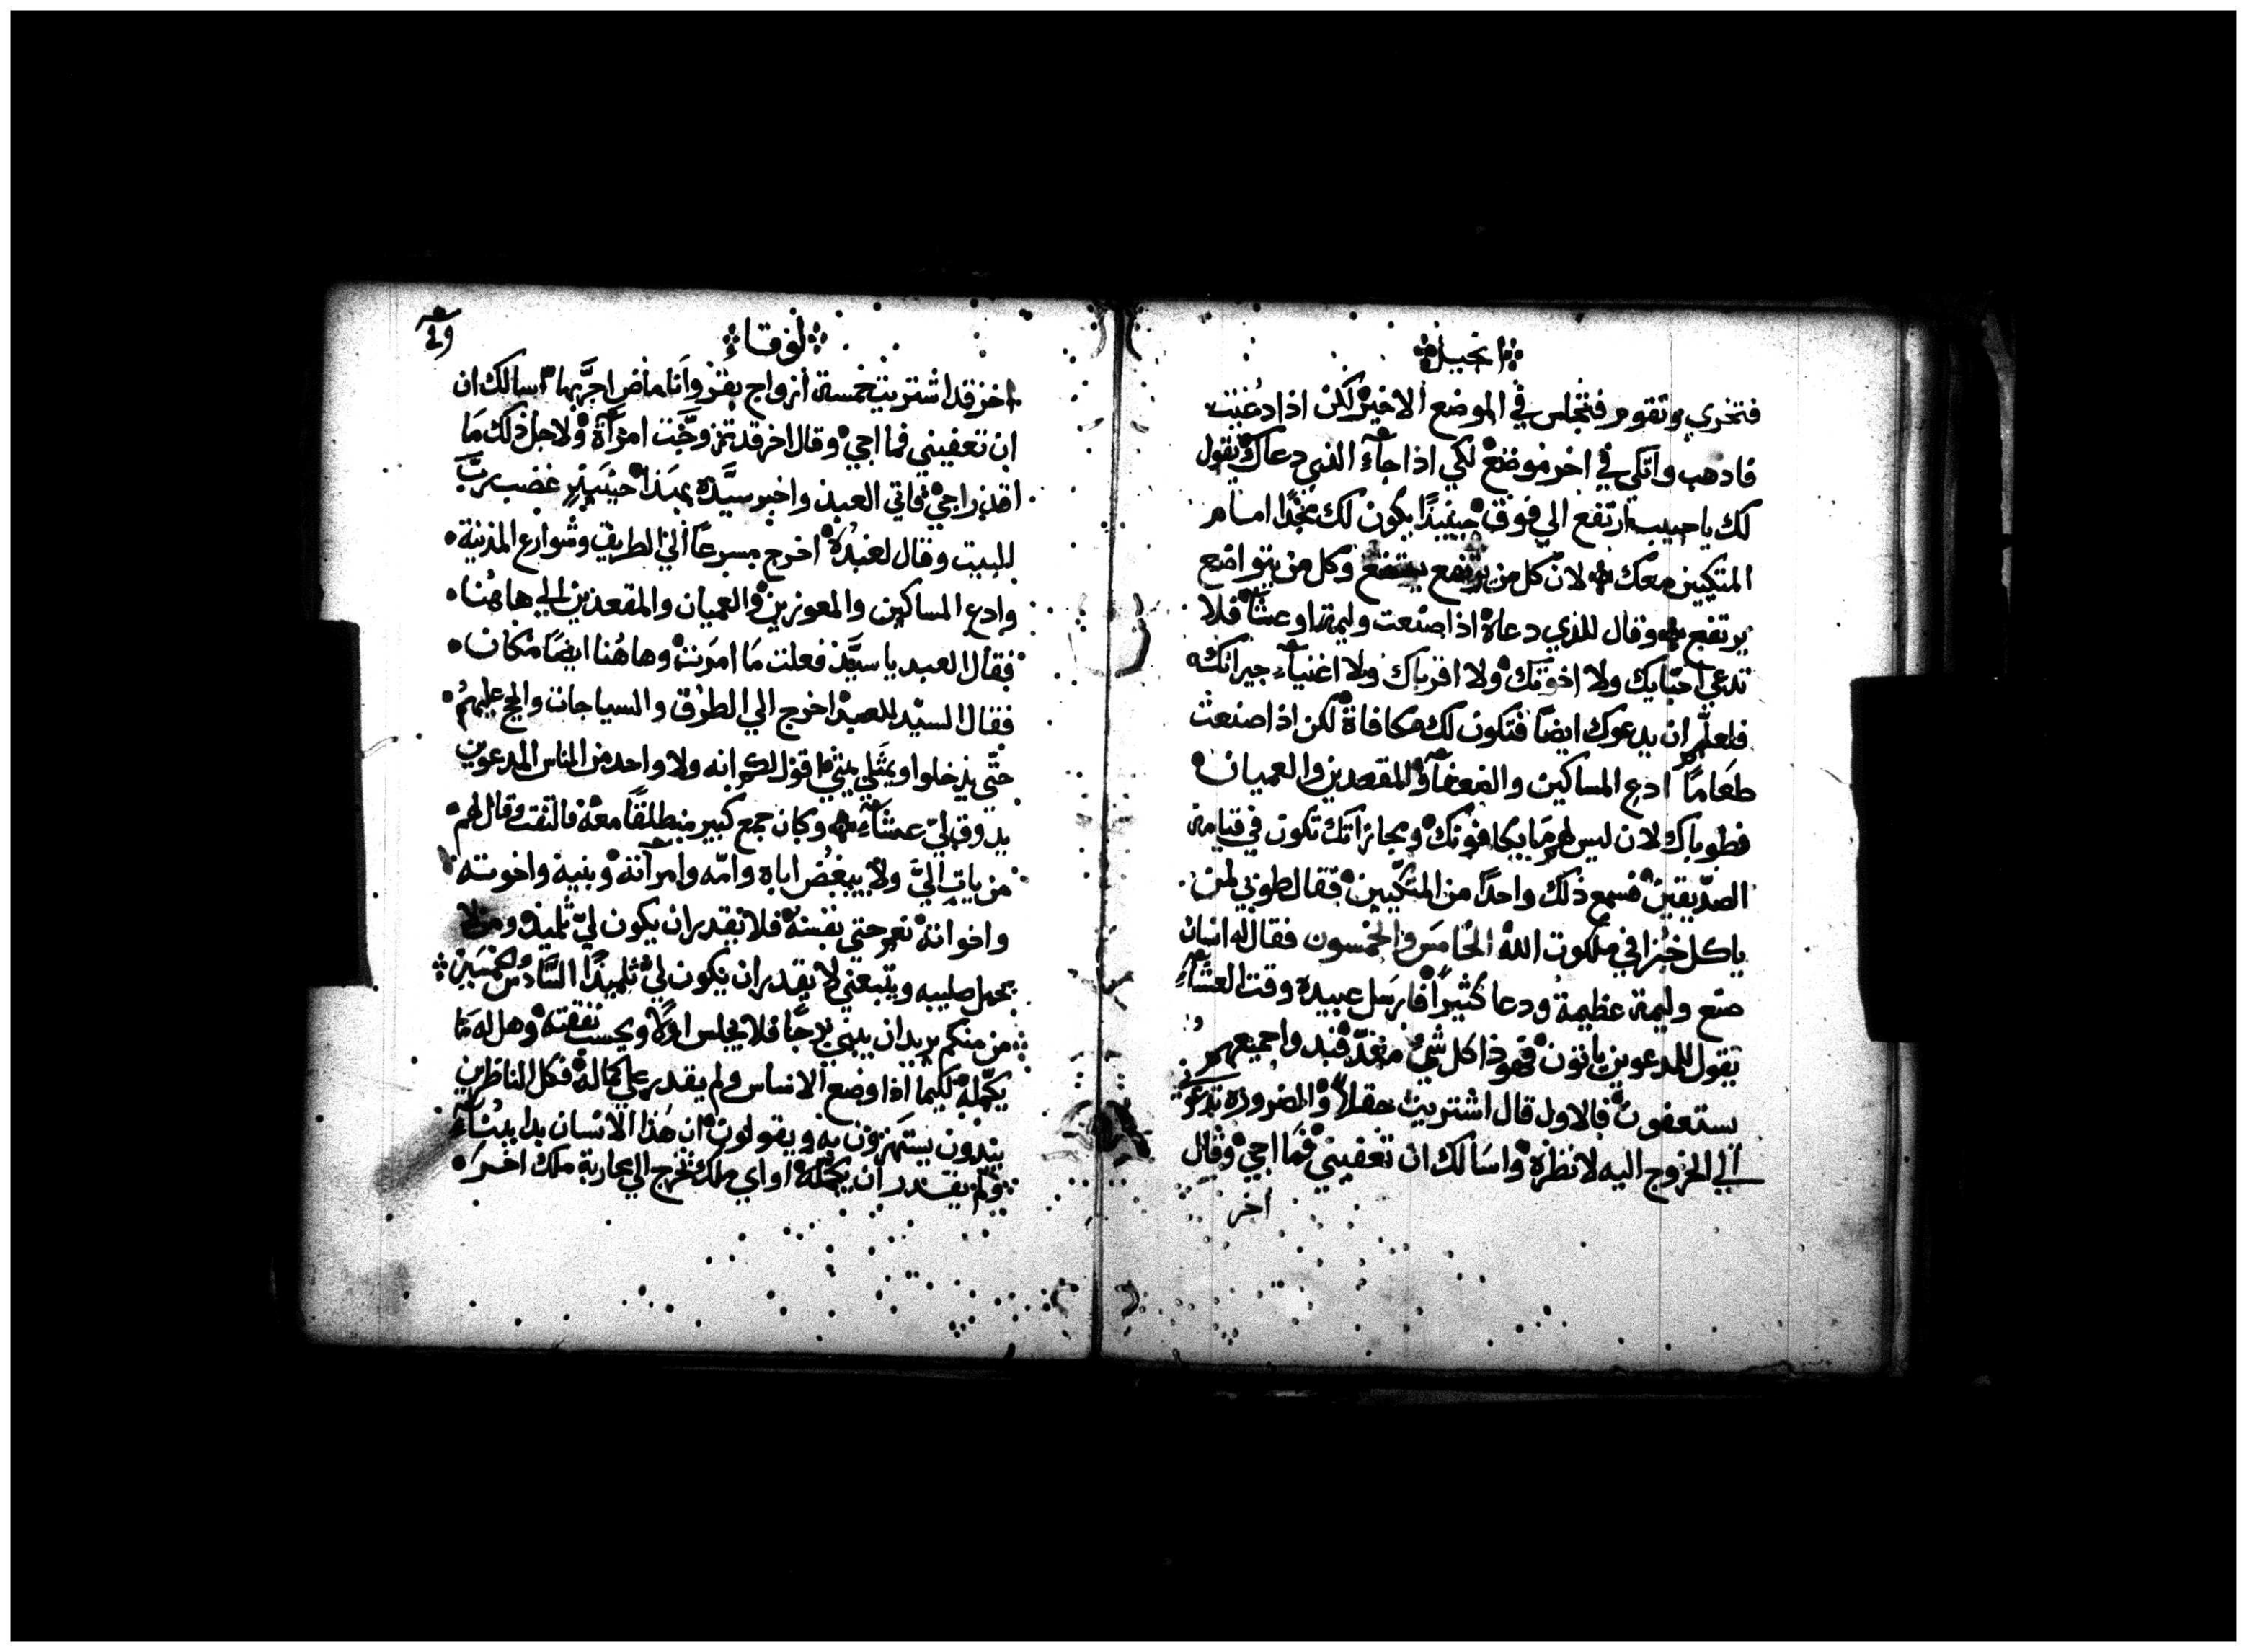 انجيل
فتخزي وتقوم فتجلس في الموضع الاخير لكن اذا دُعيت
فادهب واتكي في اخر موضع لكي اذا جآء الذي دعاك يقول
لك يا حبيب ارتفع الي فوق حينيذًا يكون لك مجدًا امام
المتكيين معك لان كل من يرتفع يتضع وكل من يتواضع
يرتفع وقال للذي دعاه اذا صنعت وليمة او عشآ فلا
تدعي احبّايك ولا اخوتك ولا اقرباك ولا اغنيآء جيرانك
فلعلّهم ان يدعوك ايضًا فتكون لك مكافاة لكن اذا صنعت
طعامًا ادع المساكين والضعفآ والمقعدين والعميان
فطوباك لان ليس لهم ما يكافونك ومجازاتك تكون في قيامة
الصدّيقين فسمع ذلك واحدًا من المتكيين فقال طوبي لمن
ياكل خبزا في ملكوت الله الخامس والخمسون فقال له انسان
صنع وليمة عظيمة ودعا كثيرًا فارسل عبيده وقت العشآء
يقول للمدعوين ياتون فهوذا كل شي معَدّ فبدوا جميعهم
يستعفون فالاول قال اشتريت حقلاً والضرورة تدعوني
الي الخروج اليه لانظره واسالك ان تعفيني فما اجي وقال
اخر
لوقا
اخر قد اشتريت خمسة ازواج بقر وانا ماضٍ اجرّبها اسالك ان
ان تعفيني فما اجي وقال اخر قد تزوجّت امرآة ولاجل ذلك ما
اقدر اجي فاتي العبد واخبر سيّده بهذا حينيذٍ غضب ربّ
البيت وقال لعبده اخرج مسرعًا الي الطريق وشوارع المدينة
وادع المساكين والمعوزين والعميان والمقعدين الي هاهنا
فقال العبد يا سيّد فعلت ما امرت وهاهُنا ايضًا مكان
فقال السيّد للعبد اخرج الي الطرق والسياجات والج عليهم
حتّي يدخلوا ويمتلي بيتي اقول لكم انه ولا واحد من الناس المدعوين
يدوق ليّ عشآء وكان جمع كبير منطلقًا معه فالتفت وقال لهم
من يات اليّ ولا يبغُض اباه وامّه وامرآته وبنيه واخوته
واخواته نعم حتي نفسه فلا يقدر ان يكون ليّ تلميذ ومن لا
يحمل صليبه ويتبعني لا يقدر ان يكون لي تلميذًا السَّادُس لخمسين
من منكم يريد ان يبني برجًا فلا يجلس اولا ويحسب نفقته وهل له ما
يكمّله لكيما اذا وضع الاساس ولم يقدر علي كماله فكل الناظرين
يبتدون يستهزون به ويقولون ان هذا الانسان بدا ببنآء
ولم يقدر ان يكمّله او اي ملك تخرج الي محاربة ملك اخر